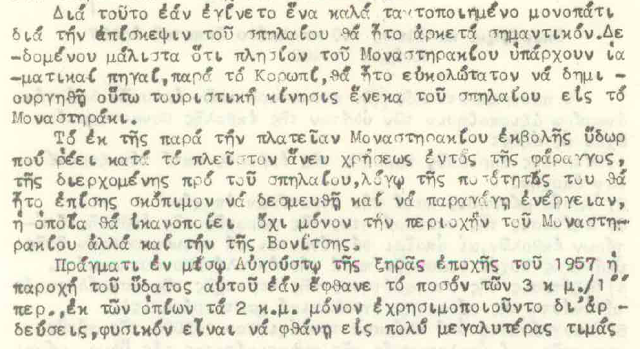 Διά τοῦτο ἐάν ἐγίνετο ἕνα καλά τακτοποιημένο μονοπάτι
διά τήν ἐπίσκεψιν τοῦ σπηλαίου θά ἦτο ἀρκετά σημαντικόν.Δε-
δομένου μάλιστα ὅτι πλησίον τοῦ Μοναστηρακίου ὑπάρχουν ἰα
ματικαί πηγαί,παρά τό Κορωπί,θά ἦτο εὐκολώτατον νά δημι-
ουργηθῇ οὕτω τουριστική κίνησις ἕνεκα τοῦ σπηλαίου εἰς τό
Μοναστηράκι.
Τό ἐκ τῆς παρά τήν πλατεῖαν Μοναστηρακίου ἐκβολῆς ὕδωρ
πού ρέει κατά τό πλεῖστον ἄνευ χρήσεως ἐντός τῆς φάραγγος,
τῆς διερχομένης πρό τοῦ σπηλαίου,λόγῳ τῆς ποσότητός του θά
ἦτο ἐπίσης σκόπιμον νά δεσμευθῇ καί νά παραγάγῃ ἐνέργειαν,
ἡ ὁποία θά ἱκανοποιεῖ ὄχι μόνον τήν περιοχήν τοῦ Μοναστη-
ρακίου ἀλλά καί τήν τῆς Βονίτσης.
Πράγματι ἐν μέσῳ Αὐγούστῳ τῆς ξηρᾶς ἐποχῆς τοῦ 1957 ἡ
παροχή τοῦ ὕδατος αὐτοῦ ἐάν ἔφθανε τό ποσόν τῶν 3 κ μ./1''
περ.,ἐκ τῶν ὁπίων τά 2 κ.μ. μόνον ἐχρησιμοποιοῦντο δι'ἀρ-
δεύσεις,φυσικόν εἶναι νά φθάνῃ εἰς πολύ μεγαλυτέρας τιμάς